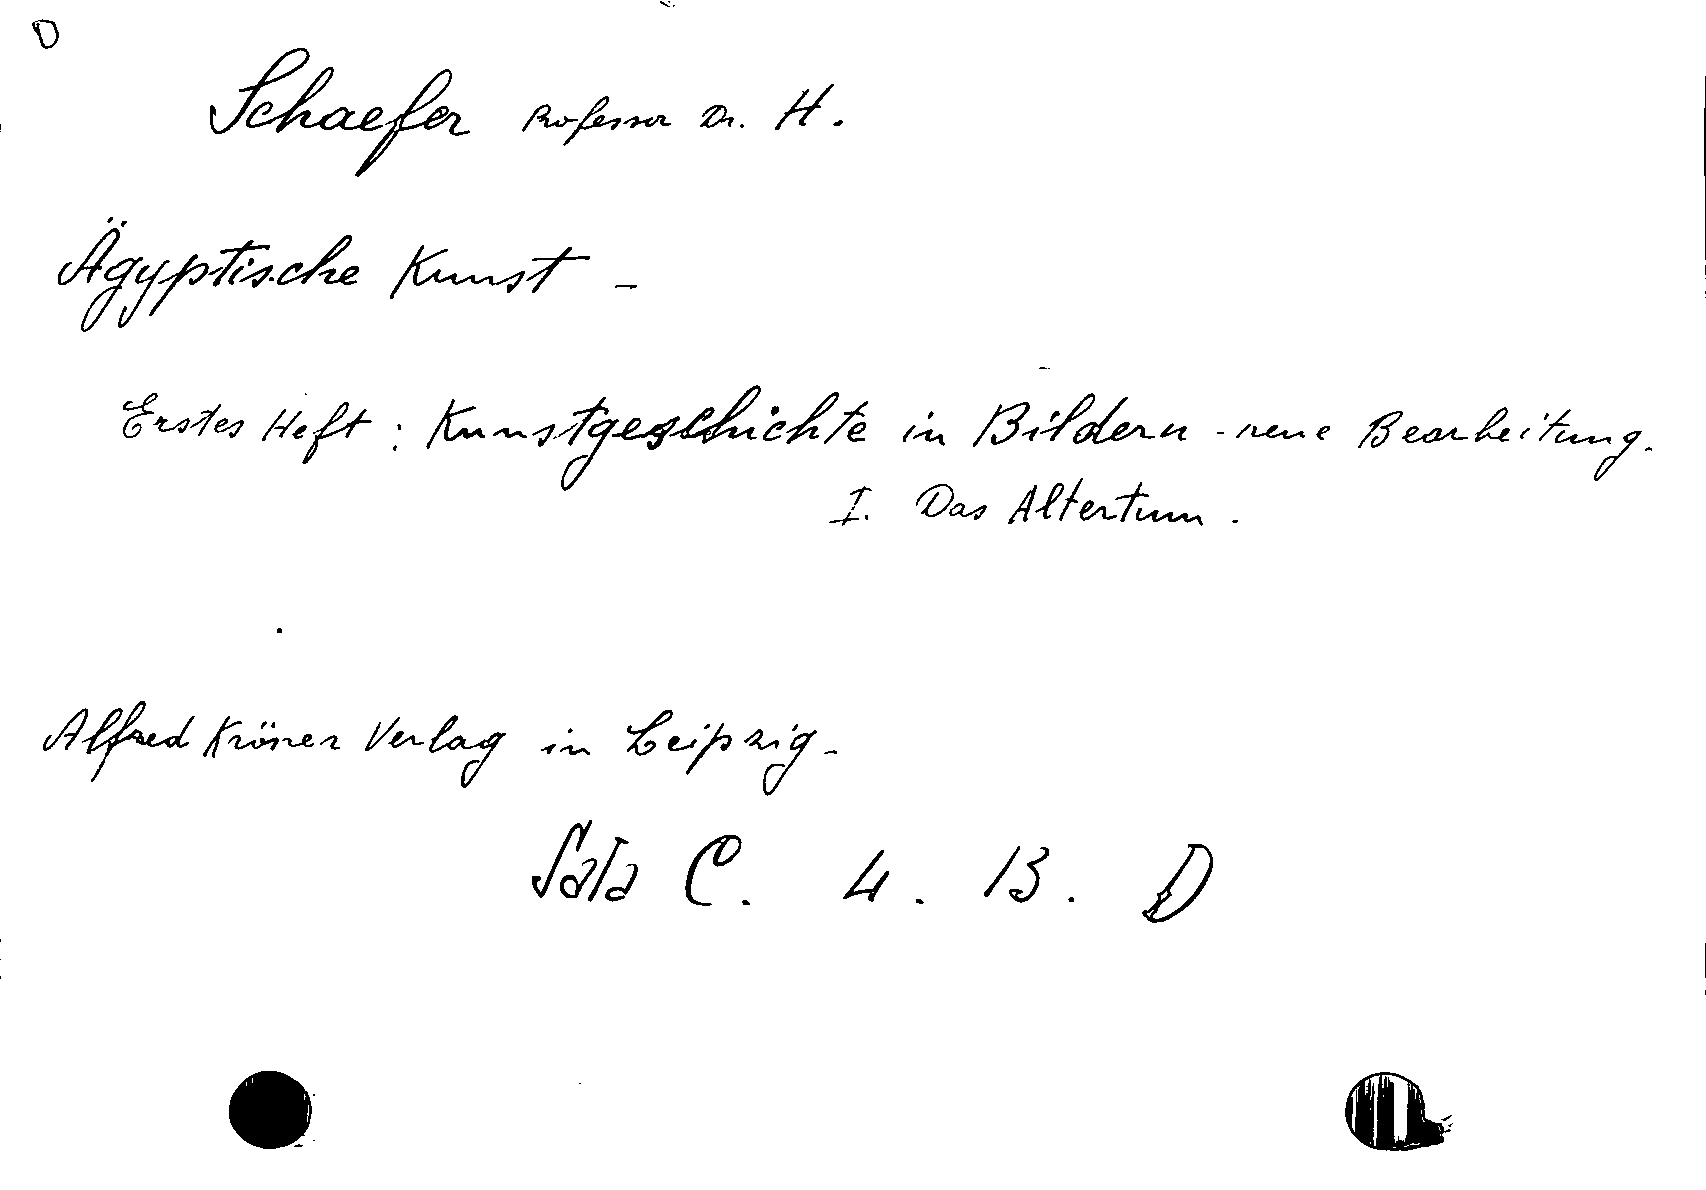 D
Schaefer Professor Dr. H.
Ägyptische Kunst -
Erstes Heft : Kunstgeschichte in Bildern - neue Bearbeitung.
I. Das Altertum.
Alfred Kröner Verlag in Leipzig -
Sala C. 4. 13. D